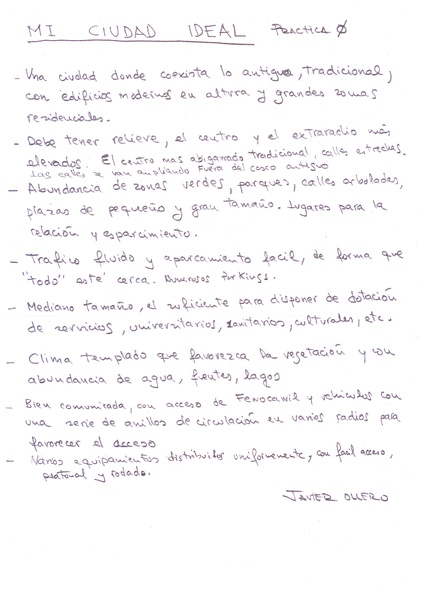 MI CIUDAD IDEAL PRACTICA Ø
- Una ciudad donde coexista lo antiguo, tradicional,
con edificios modernos en altura y grandes zonas
residenciales.
- Debe tener relieve, el centro y el extraradio más
elevados. El centro mas abigarrado tradicional, calles estrechas.
Las calles se van ampliando fuera del casco antiguo
- Abundancia de zonas verdes, parques, calles arboladas,
plazas de pequeño y gran tamaño. Lugares para la
relación y esparcimiento.
- Trafico fluido y aparcamiento facil, de forma que
"todo" esté cerca. Numerosos Parkings.
- Mediano tamaño, el suficiente para disponer de dotación
de servicios, universitarios, sanitarios, culturales, etc.
- Clima templado que favorezca la vegetación y con
abundancia de agua, fuentes, lagos
- Bien comunicada, con acceso de Ferrocarril y vehiculos con
una serie de anillos de circulación en varios radios para
favorecer el acceso
- Varios equipamientos distribuidos uniformemente, con facil acceso,
peatonal y rodado.
JAVIER OTERO